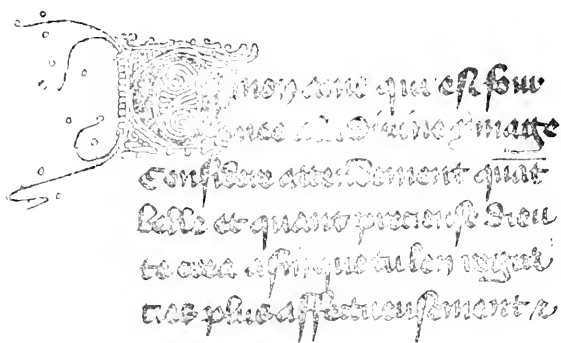 mon ame qui est four
mee a la divine ymage
Considere attendement quat
belle et quant precieuse dieu
te crea afin que tu len
plus affectueusement &